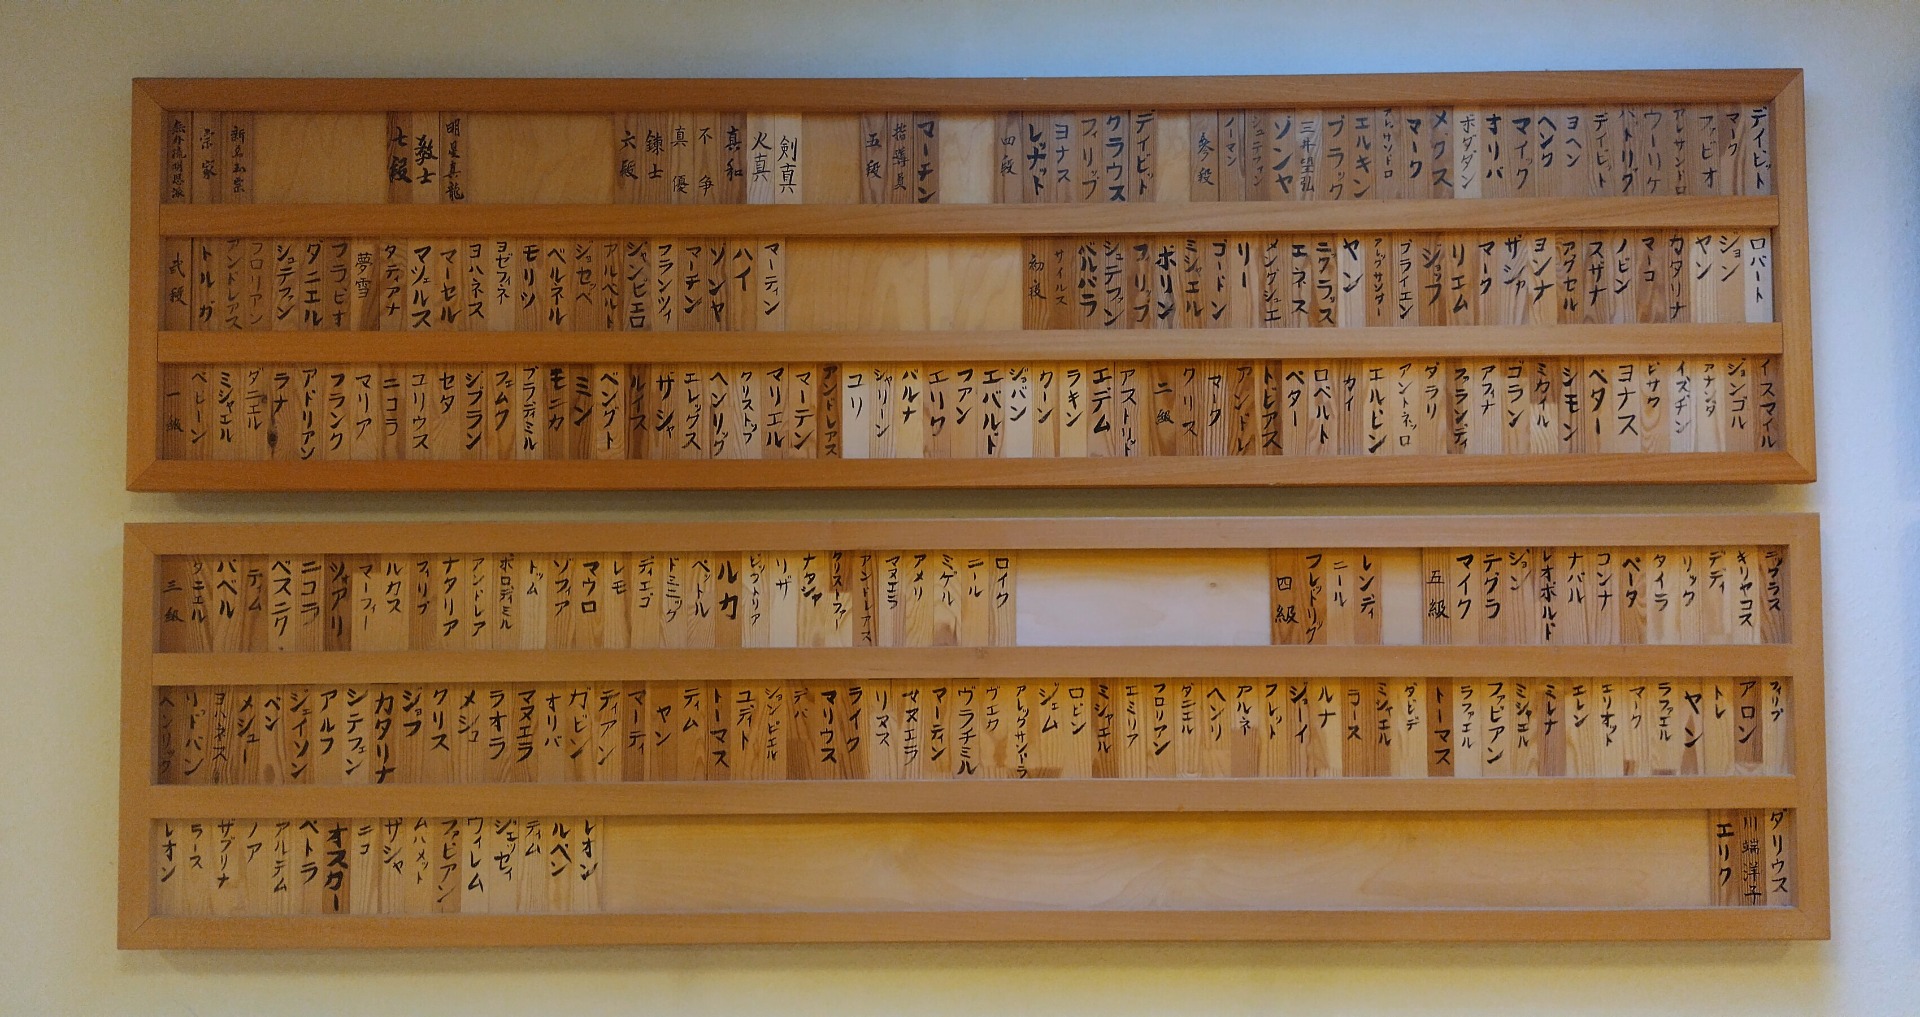 無外流明思派
宗家
新名和宗
七段
教士
明星真龍
六段
錬士
真優
不争
真和
火真
剣真
五段
指導員
マーチン
四段
レッナット
ヨナス
フィリップ
クラウス
デイビット
参段
ノーマン
シュテファン
ゾンヤ
三井望弘
ブラック
エルキン
アレッサンドロ
マーク
メクス
ボグダン
オリバ
マイック
ヘンク
ヨヘン
デイビット
パトリグ
ウーリケ
アレサンドロ
ファビオ
マーク
デイビット
弐段
トルガ
アンドレアス
フロリアン
シュテファン
ダニエル
フラビオ
夢雪
タティアナ
マヅェルス
マーセル
ヨハネス
ヨゼフィネ
モリツ
ベルネル
ジョセッペ
アルベルト
ジャンピエロ
フランツィ
マーチン
ソンヤ
ハイ
マーティン
初段
サイルス
バルバラ
シュテファン
フィリップ
ポリン
ミシェエル
ゴードン
リー
メングシュエ
エネス
ニクラッス
ヤン
アレッグサンダー
ブライエン
ジョッフ
リエム
マーク
ザシャ
ヨンナ
アクセル
スザナ
ノビン
マーコ
カタリナ
ヤン
ション
ロバート
一級
ベビーン
ミシャエル
ダニエル
ラナ
アドリアン
フランク
マリア
ニコラ
ユリウス
セタ
ジブラン
フェムク
ブラディミル
モニカ
ミン
ベングト
ルイス
ザシャ
エレッグス
ヘンリック
クリストップ
マリエル
マーテン
アンドレアス
ユリ
シャリーン
バルナ
エリク
ファン
エバルド
ジョバン
クーン
ラキン
エデム
アストリッド
二級
クリス
マーク
アンドレ
トビアス
ペター
ロベルト
カイ
エルドレン
アントネッロ
ダラリ
フランティ
アフィナ
ゴラン
ミカイル
シモン
ペター
ヨナス
ビサク
イズヂン
アナンダ
ジョンゴル
イスマイル
三級
ダニエル
パベル
ティム
ベスニク
ニコラ
ジョアリ
マーフィー
ルカス
フィリプ
ナタリア
アンドレア
ボロディミル
トッム
ソフィア
マウロ
レモ
ディエゴ
ドミニッグ
ペットル
ルカ
ビックトリア
リザ
ナタシャ
クリストーファー
アンドレアス
マヌエラ
アメリ
ミゲル
ニール
ロイク
四級
フレッドリグ
ニール
レンディ
五級
マイク
テグラ
ジョン
レオポルド
ナバル
コンナ
ペータ
タイラ
リック
デディ
キリヤコス
ニックラス
ヘンリック
リッドバン
ヨハネス
メシュー
ベン
ジェイソン
アルフ
シテフェン
カタリナ
ジョフ
クリス
メショ
ラオラ
マヌエラ
オリバ
ガビン
ディアン
マーティ
ヤン
ティム
トーマス
ユディト
ジョンピエル
デバ
マリウス
ライク
リヌス
マヌエラ
マーティン
ヴラチミル
ヴェカ
アレックサンドラ
ジェム
ロビン
ミシャエル
エミリア
フロリアン
ダニエル
ヘンリ
アルネ
フレット
ジョーイ
ルナ
ラース
ミシャエル
ダビデ
トーマス
ラファエル
ファビアン
ミシャエル
ミレナ
エレン
エリオット
マーク
ラファエル
ヤン
トレ
アロン
フィリプ
レオン
ラース
ザブリナ
ノア
アルテム
ペトラ
オスカー
ニコ
ザシャ
ムハメット
ファビアン
ウィレム
ジェッセィ
ティム
ルベン
レオン
エリク
川端洋子
ダリウス